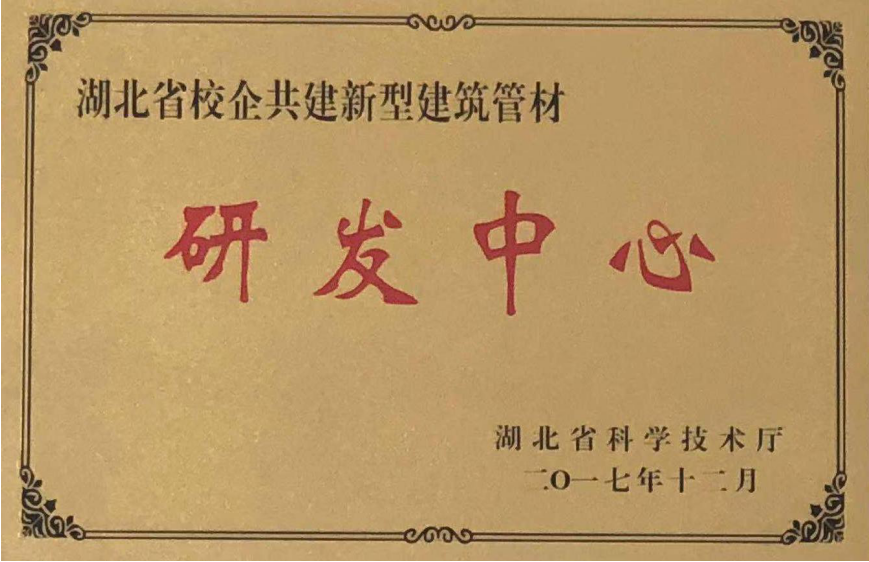 湖北省校企共建新型建筑管材
研发中心
湖北省科学技术厅
二〇一七年十二月